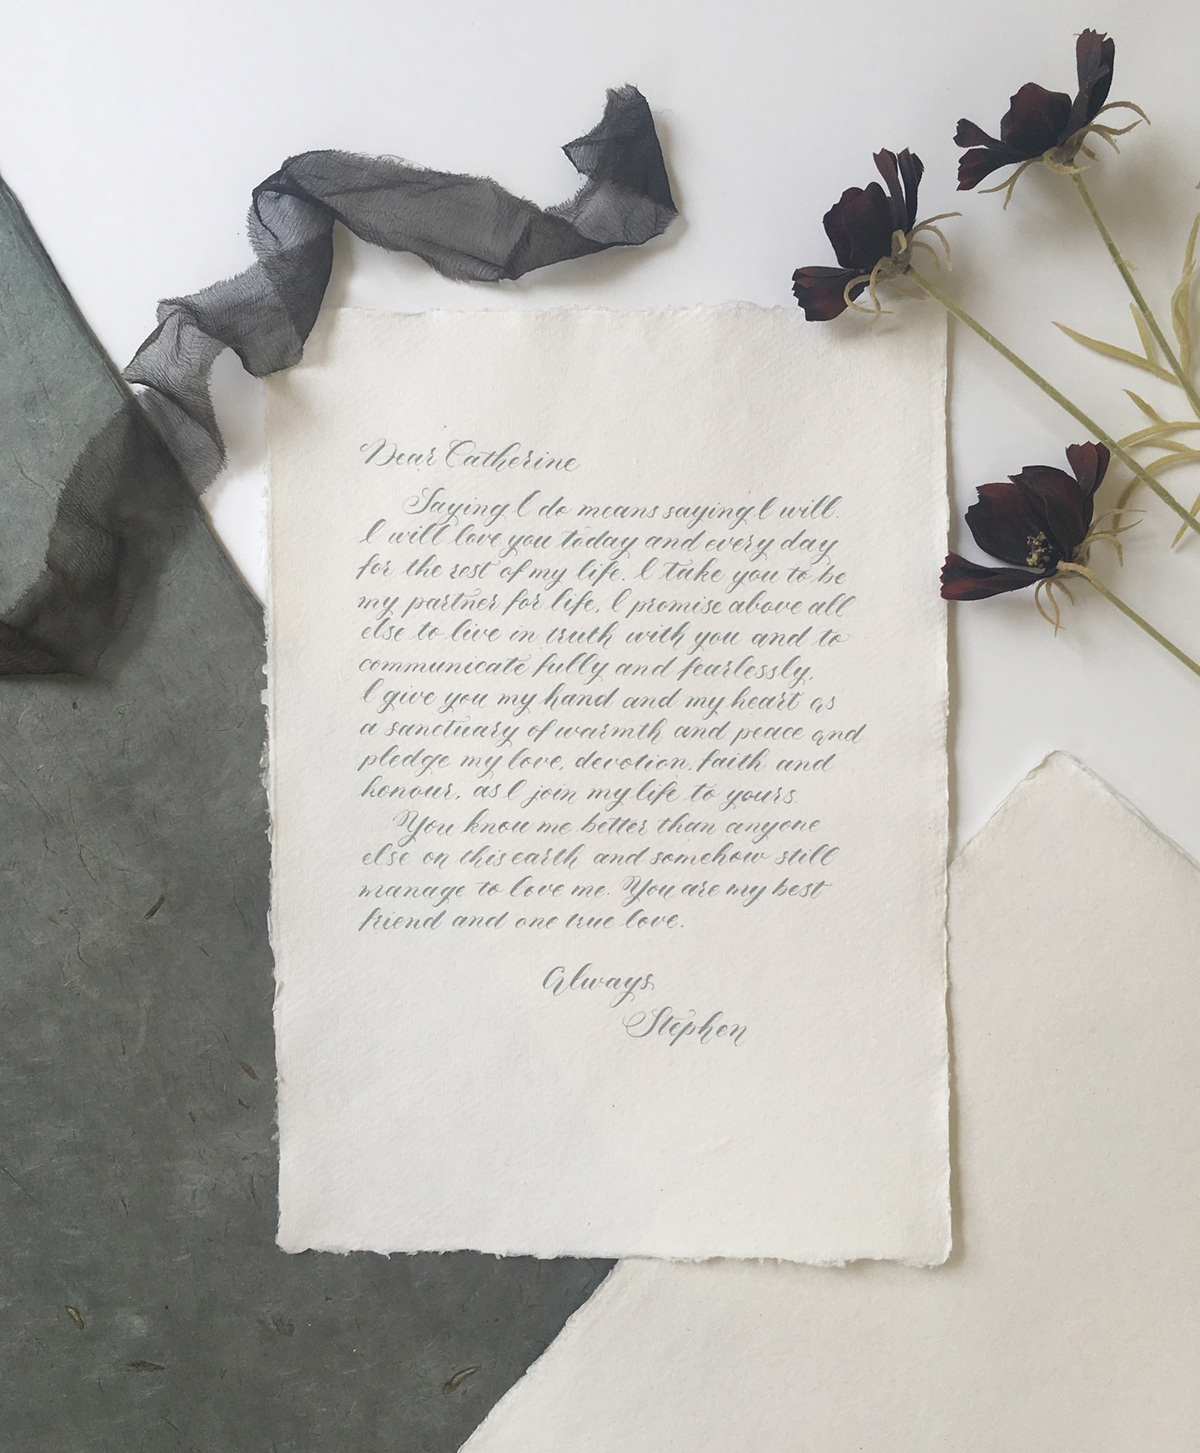 Dear Catherine
Saying I do means saying I will.
I will love you today and every day
for the rest of my life. I take you to be
my partner for life, I promise above all
else to live in truth with you and to
communicate fully and fearlessly.
I give you my hand and my heart as
a sanctuary of warmth and peace and
pledge my love, devotion, faith and
honour, as I join my life to yours.
You know me better than anyone
else on this earth and somehow still
manage to love me. You are my best
friend and one true love.
Always
Stephen